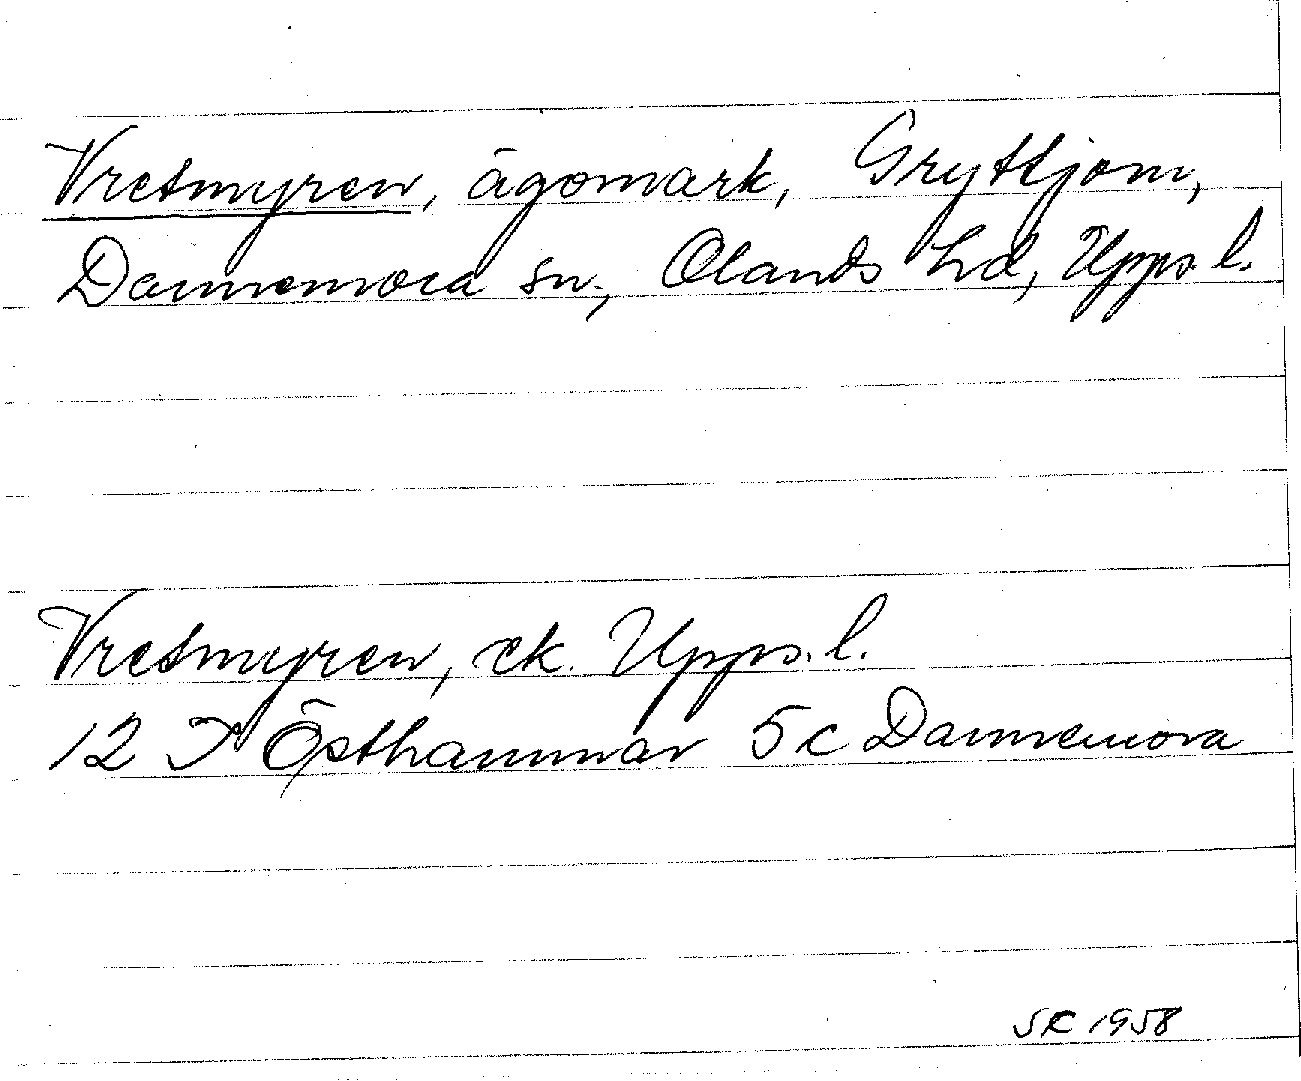 Vretmyren, ägomark, Gryttjom,
Dannemora sn, Olands hd, Upps. l.
Vretmyren, ek. Upps. l.
12 I Östhammar 5c Dannemora
SK 1958